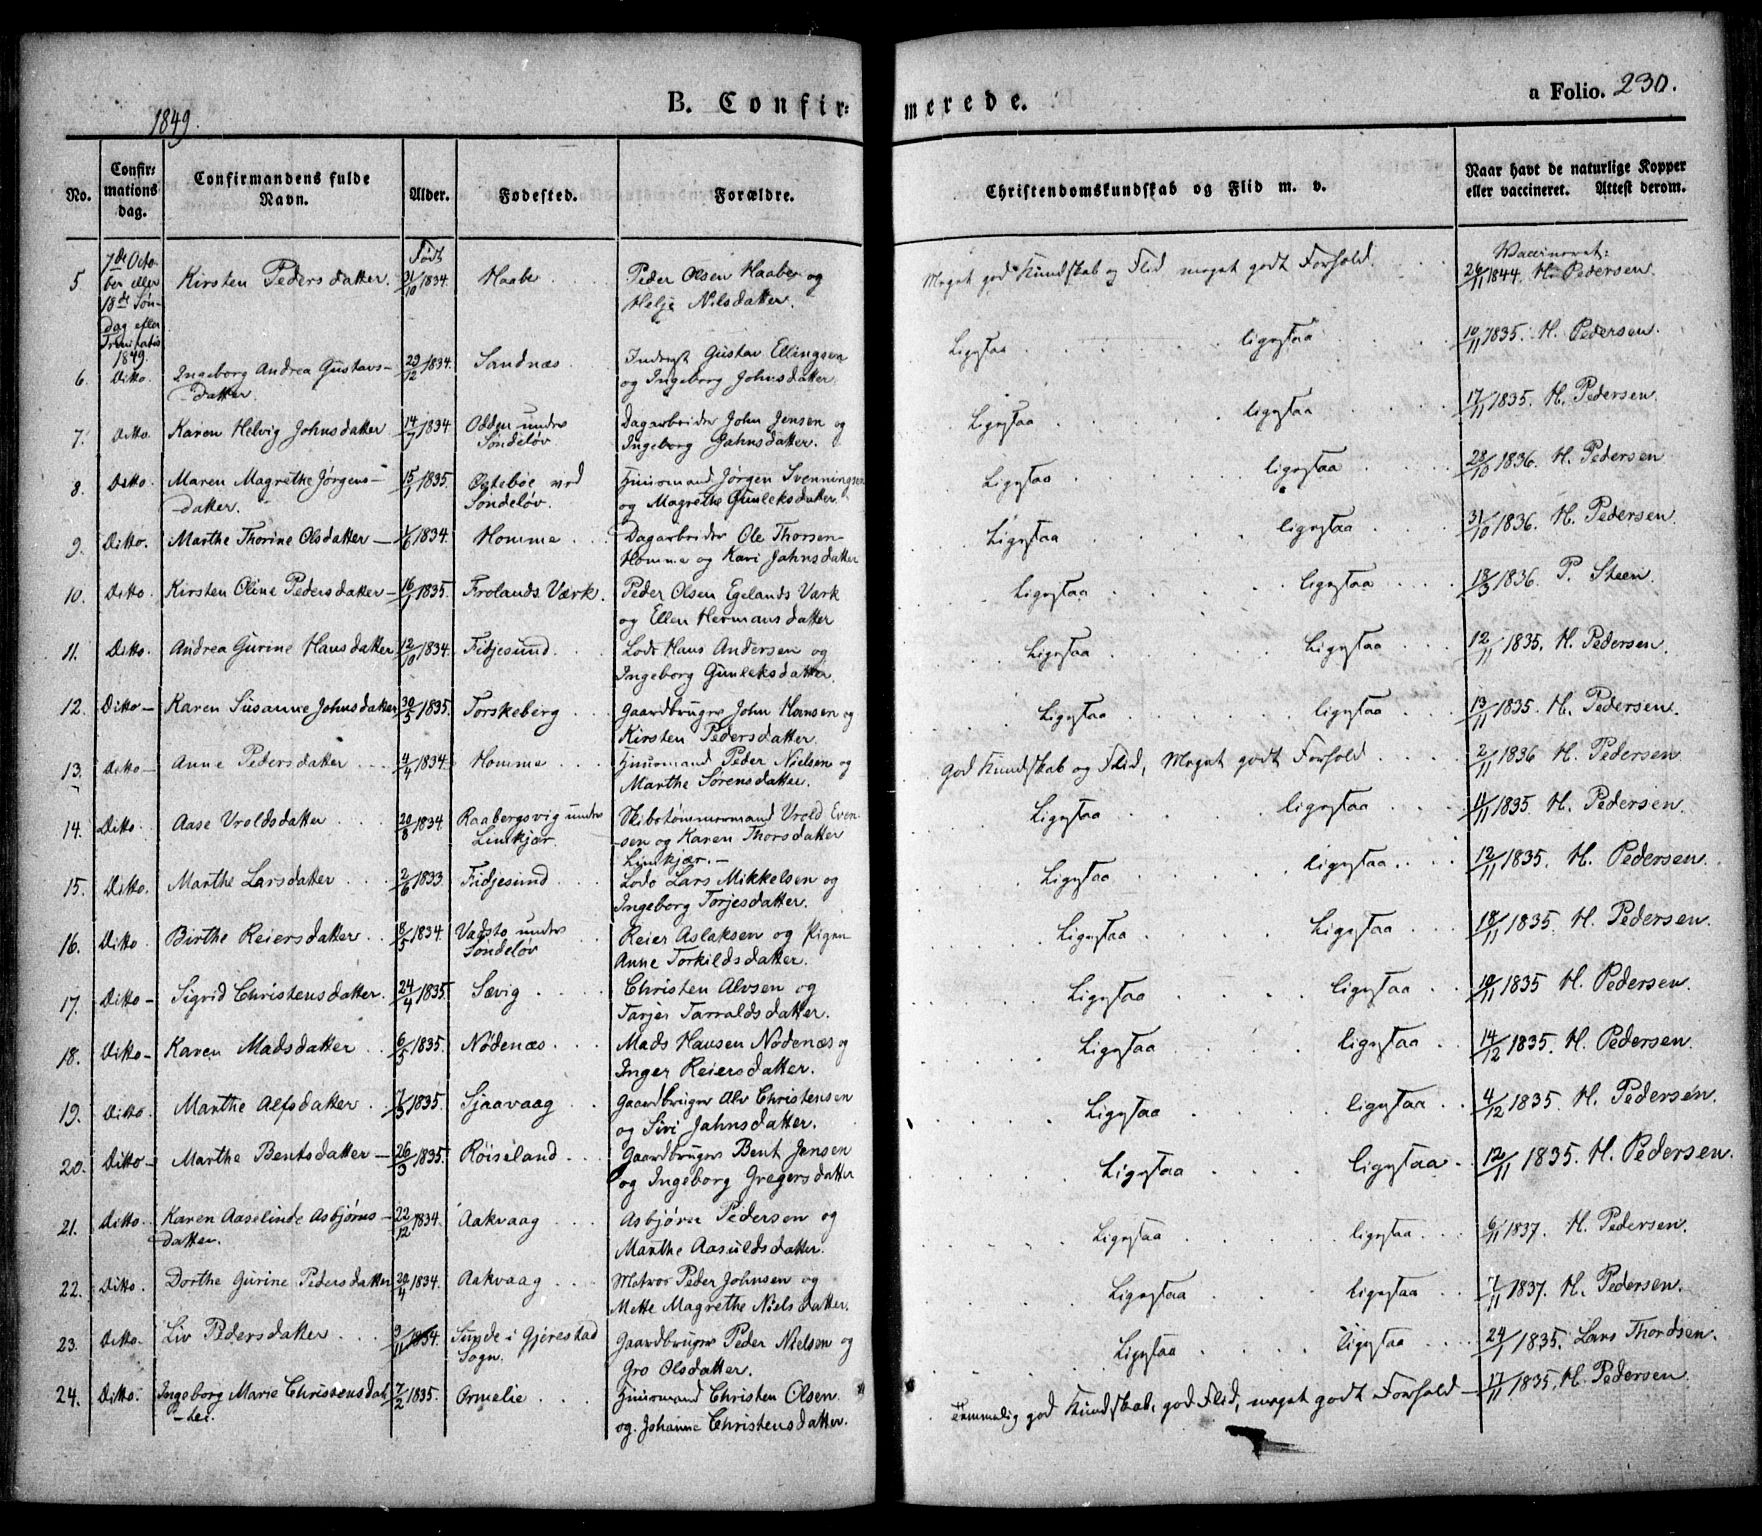 1849.
B. Confirmerede.
a Folio. 230.
No. Confirmations dag. Confirmandens fulde Navn. Alder. Fødested. Forældre. Christendomskundskab og Flid m. v. Naar havt de naturlige Kopper eller vaccineret. Attest derom.
5 7de Octo- Født Vaccineret:
ber eller Kirsten Pedersdatter. 31/10 1834. Haabe Peder Olsen Haabe og Meget god Kundskab og Flid meget godt Forhold. 26/11 1844. H. Pedersen.
18de Søn- Helje Nilsdatter.
dag efter
Trinitatis
1849.
6. Ditto. Ingeborg Andrea Gustavs- 29/12 1834. Sandnæs Inderst Gustav Ellingsen Ligesaa ligesaa 10/11 1835. H. Pedersen.
datter. og Ingeborg Johnsdatter.
7. Ditto Karen Helvig Johnsdatter 14/7 1834 Odden under Dagarbeider John Jensen og Ligesaa ligesaa 17/11 1835. H. Pedersen.
Søndeløv Ingeborg Jahnsdatter.
8. Ditto Maren Magrethe Jørgens- 15/1 1835. Østebøe ved Huusmand Jørgen Svenningsen Ligesaa ligesaa 28/10 1836. H. Pedersen
datter. Søndeløv. og Magrethe Gunleksdatter.
9. Ditto. Marthe Thorine Olsdatter 1/6 1834. Homme Dagarbeider Ole Thorsen Ligesaa ligesaa 31/10 1836. H. Pedersen
Homme og Kari Jahnsdatter
10. Ditto. Kirsten Oline Pedersdatter 16/1 1835. Frolands Værk. Peder Olsen Egelands Værk Ligesaa ligesaa 18/3 1836. P. Steen.
og Ellen Hermansdatter
11. Ditto Andrea Gurine Hansdatter 12/10 1834. Fidjesund Lods Hans Andersen og Ligesaa Ligesaa 12/11 1835. H. Pedersen.
Ingeborg Gunleksdatter.
12. Ditto Karen Susanne Johnsdatter 30/5 1835. Torskeberg Gaardbruger John Hansen og Ligesaa ligesaa 13/11 1835. H. Pedersen.
Kirsten Pedersdatter.
13. Ditto Anne Pedersdatter 9/4 1834. Homme Huusmand Peder Nielsen og God Kundskab og Flid, Meget godt Forhold 2/11 1836 H. Pedersen
Marthe Sørensdatter.
14. Ditto. Aase Vroldsdatter 20/8 1834. Raabergsvig under Skibstømmermand Vrold Even- Ligesaa ligesaa 11/11 1835 H. Pedersen.
Limkjær. sen og Karen Thorsdatter
Limkjær.
15. Ditto. Marthe Larsdatter 2/6 1833. Fidjesund Lods Lars Mikkelsen og Ligesaa ligesaa 12/11 1835. H. Pedersen.
Ingeborg Torjesdatter.
16. Ditto Birthe Reiersdatter 8/5 1834. under Reier Aslaksen og Pigen Ligesaa Ligesaa 18/11 1835. H. Pedersen.
Søndeløv Anne Torkildsdatter.
17. Ditto Sigrid Christensdatter. 24/4 1835 Sævig Christen Alvsen og Ligesaa ligesaa 10/11 1835 H. Pedersen.
Tarjer Tarraldsdatter.
18. Ditto Karen Madsdatter 6/5 1835. Nødenæs Mads Hansen Nødenæs og Ligesaa ligesaa 14/12 1835. H. Pedersen.
Inger Reiersdatter.
19. Ditto. Marthe Alfsdatter. 1835. Sjaavaag Gaardbruger Alv Christensen Ligesaa ligesaa 4/12 1835. H. Pedersen.
og Siri Jahnsdatter.
20. Ditto Marthe Bentsdatter 26/3 1835. Røiseland Gaardbruger Bent Jensen Ligesaa ligesaa 12/11 1835. H. Pedersen.
og Ingeborg Gregersdatter
21. Ditto. Karen Aaselinde Asbjørns- 22/12 1834. Aakvaag Asbjørn Pedersen og Ligesaa ligesaa 6/11 1837. H. Pedersen.
datter. Marthe Aasuldsdatter.
22. Ditto. Dorthe Gurine Pedersdatter 20/4 1834. Aakvaag Matros Peder Johnsen og Ligesaa ligesaa 7/11 1837. H. Pedersen.
Mette Magrethe Nielsdatter.
23. Ditto. Liv Pedersdatter 9/11 1834. Sunde i Gjerestad Gaardbruger Peder Nielsen og Ligesaa ligesaa 24/1 1835. Lars Thordsen.
Sogn. Gro Olsdatter.
24. Ditto. Ingeborg Marie Christensdat- 7/2 1835. Ormelie Huusmand Christen Olsen Temmelig god Kundskab, god Flid, meget godt Forhold 17/11 1835. H. Pedersen
ter. og Johanne Christensdatter.